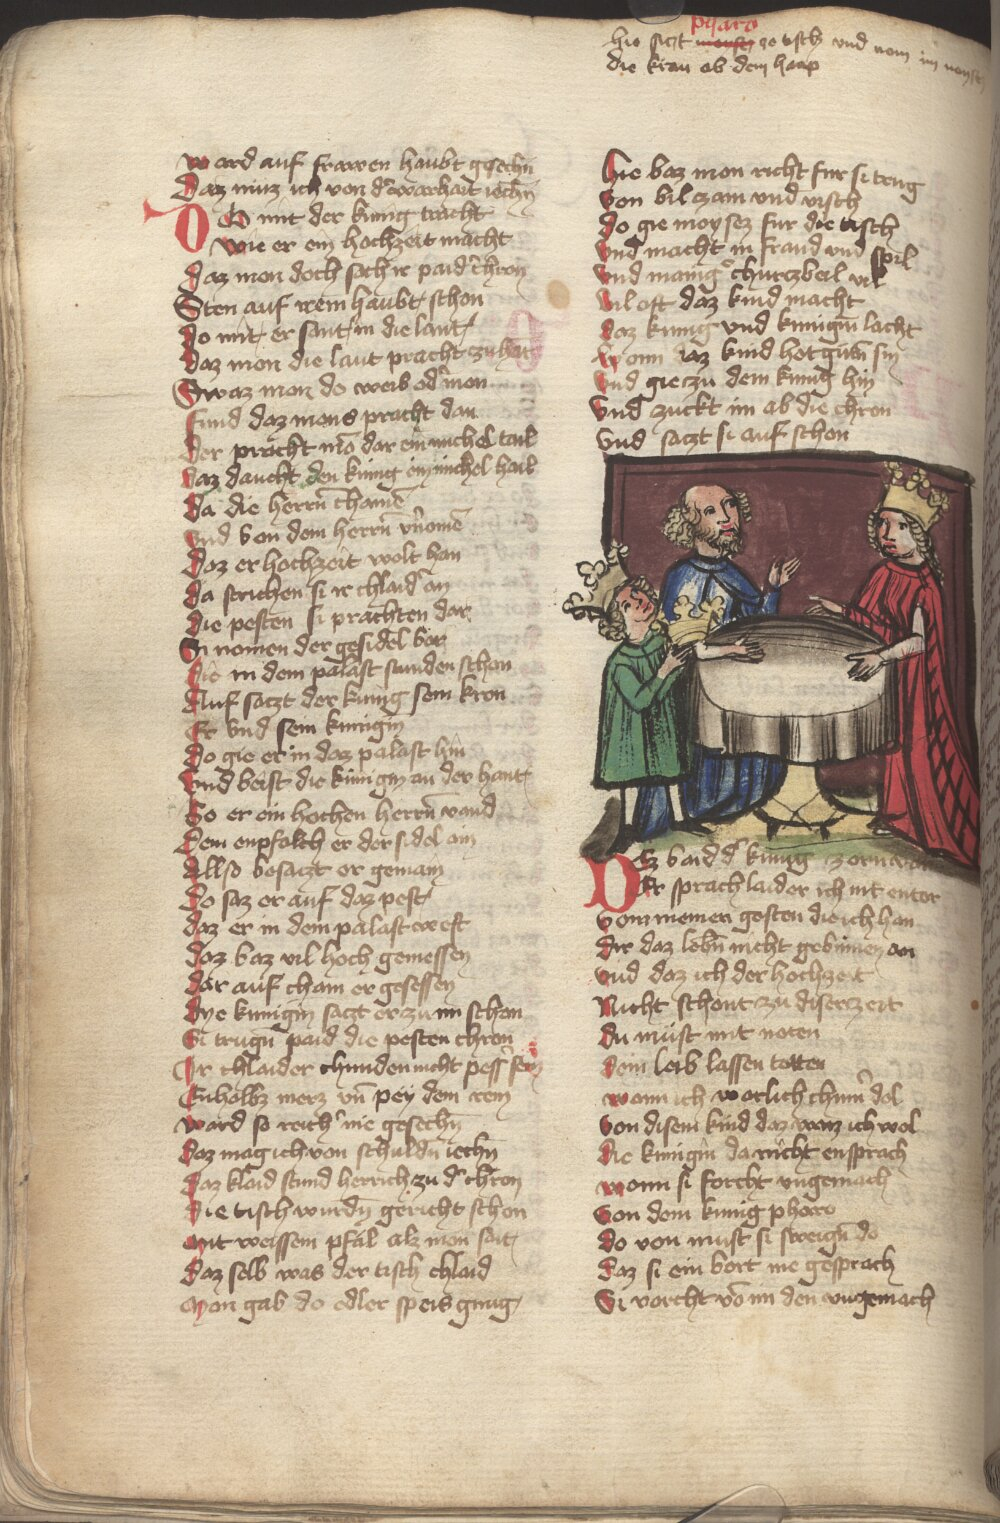 pharo
hie siczt moyses ze tisch und nam im moyses
die kran ab dem haup
ward auf frawen haubt gesechn
Daz muz ich von der warhait iechn
Do mit der kunig tracht
wie er ein hochzeit macht
Daz man doch sach ir paider chron
Sten auf irem haubt schon
Do mit er sant in die lant
Daz man die laut pracht zu hant
Swaz man do weib oder man
fund daz mans pracht dan
Der pracht man dar ein michel tail
Daz daucht den kunig ein michel hail
Da die herrn chamen
und von dem herrn vernomen
Daz er hochzeit wolt han
Da strichen si ir chlaider an
Die pesten si prachten dar
Si nomen der gesidel bar
Die in dem palast stunden schon
Auf saczt der kunig sein kron
Er und sein kunigin
Do gie er in daz palast hin
und beist die kunigin an der hant
So er ein hochen herrn vand
Dem enpfalch er der sidel ain
Allso besaczt er gemain
Do saz er auf daz pest
Daz er in dem palast west
Daz baz vil hoch gemessen
Dar auf cham er gesessen
Dye kunigin saczt er zu im schon
Si trugn paid die pesten chron
Ir chlaider chunden nicht pesser sein
Enhalbz merz und pey dem rein
ward so reicher nie gesechn
Daz mag ich von schuldn iechn
Daz klaid stund herrich zu der chron
Die tisch wurdn gericht schon
Mit weissem pfal alz man sait
Daz selb was der tisch chlaid
Man gab do edler speis genug
Hie baz man richt fur si trug
Von bil zam und visch
Do gie moyses fur die tisch
Und macht in fraud und spil
Und manig churczbeil vil
Vil oft daz kind macht
Daz kunig und kunigin lacht
Wann daz kind hot gutn sin
Und gie czu dem kunig hin
Und zuckt im ab die chron
Und saczt si auf schon
Dez bard der kunig zornvar
Er sprach laider ich nit entar
Vor meinen gesten die ich han
Dir daz lebn nicht gebinnen an
Und daz ich der hochzeit
Nicht schont zu diser zeit
Du must mit noten
Dein leib lassen totten
wann ich warlich chumer dol
Von disem kind daz waiz ich wol
Die kunigin da nicht ensprach
wann si forcht ungemach
Von dem kunig pharo
Do von must si sweign do
Daz si ein bort nie gesprach
Si vorcht von im den ungemach